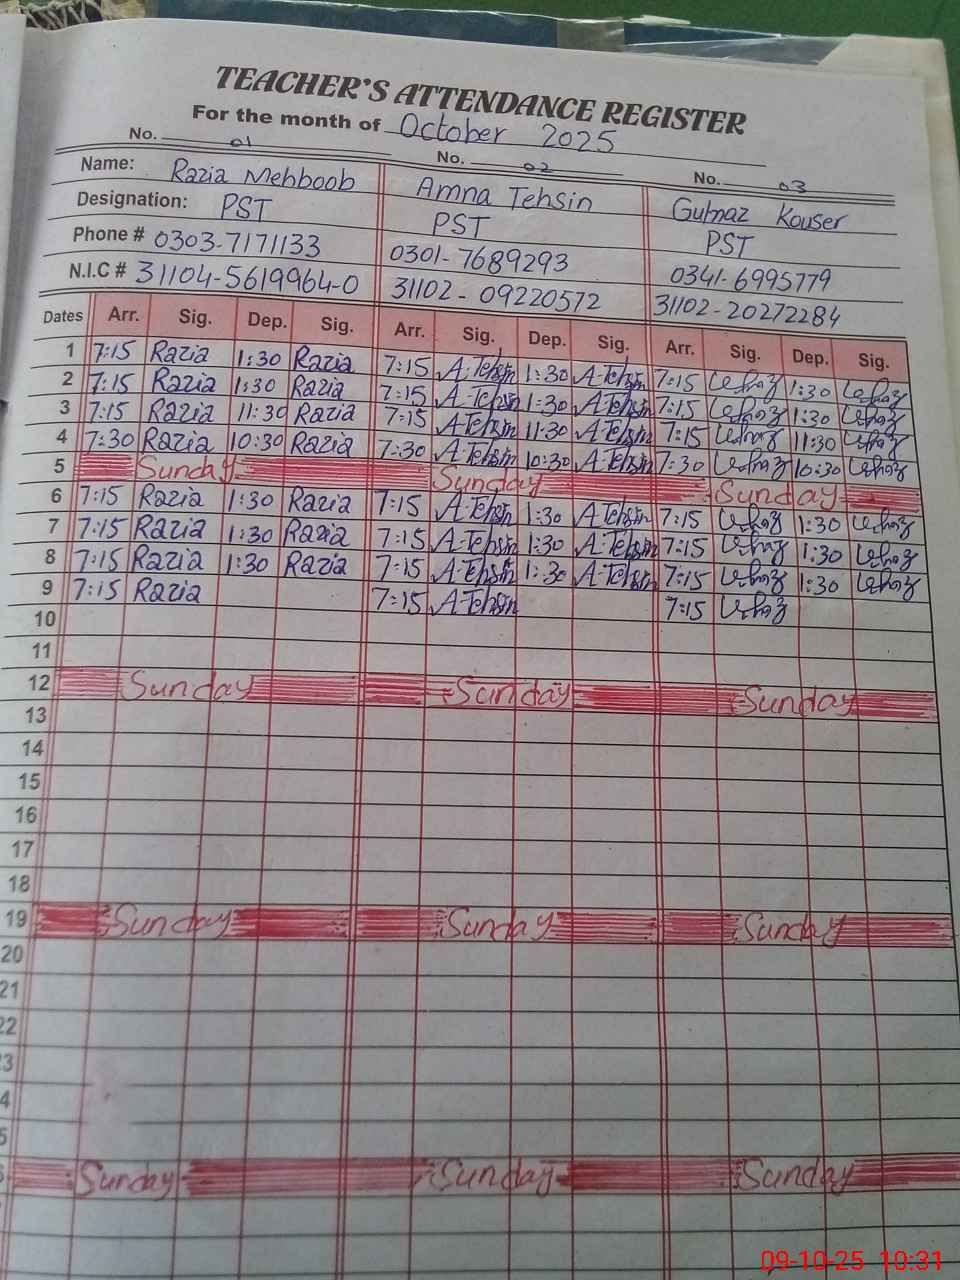 TEACHER'S ATTENDANCE REGISTER
For the month of October 2025
No. 01 No. 02 No. 03
Name: Razia Mehboob Amna Tehsin Gulnaz Kouser
Designation: PST PST PST
Phone # 0303-7171133 0301-7689293 0341-6995779
N.I.C # 31104-5619964-0 31102-09220572 31102-20272284
Dates Arr. Sig. Dep. Sig. Arr. Sig. Dep. Sig. Arr. Sig. Dep. Sig.
1 7:15 Razia 1:30 Razia 7:15 A-Tehsin 1:30 A-Tehsin 7:15 1:30
2 7:15 Razia 1:30 Razia 7:15 A-Tehsin 1:30 A-Tehsin 7:15 1:30
3 7:15 Razia 11:30 Razia 7:15 A-Tehsin 11:30 A-Tehsin 7:15 11:30
4 7:30 Razia 10:30 Razia 7:30 A-Tehsin 10:30 A-Tehsin 7:30 10:30
5 Sunday Sunday Sunday
6 7:15 Razia 1:30 Razia 7:15 A-Tehsin 1:30 A-Tehsin 7:15 1:30
7 7:15 Razia 1:30 Razia 7:15 A-Tehsin 1:30 A-Tehsin 7:15 1:30
8 7:15 Razia 1:30 Razia 7:15 A-Tehsin 1:30 A-Tehsin 7:15 1:30
9 7:15 Razia 7:15 A-Tehsin 7:15
10
11
12 Sunday Sunday Sunday
13
14
15
16
17
18
19 Sunday Sunday Sunday
20
21
22
3
4
5
Sunday Sunday Sunday
09-10-25 10:31